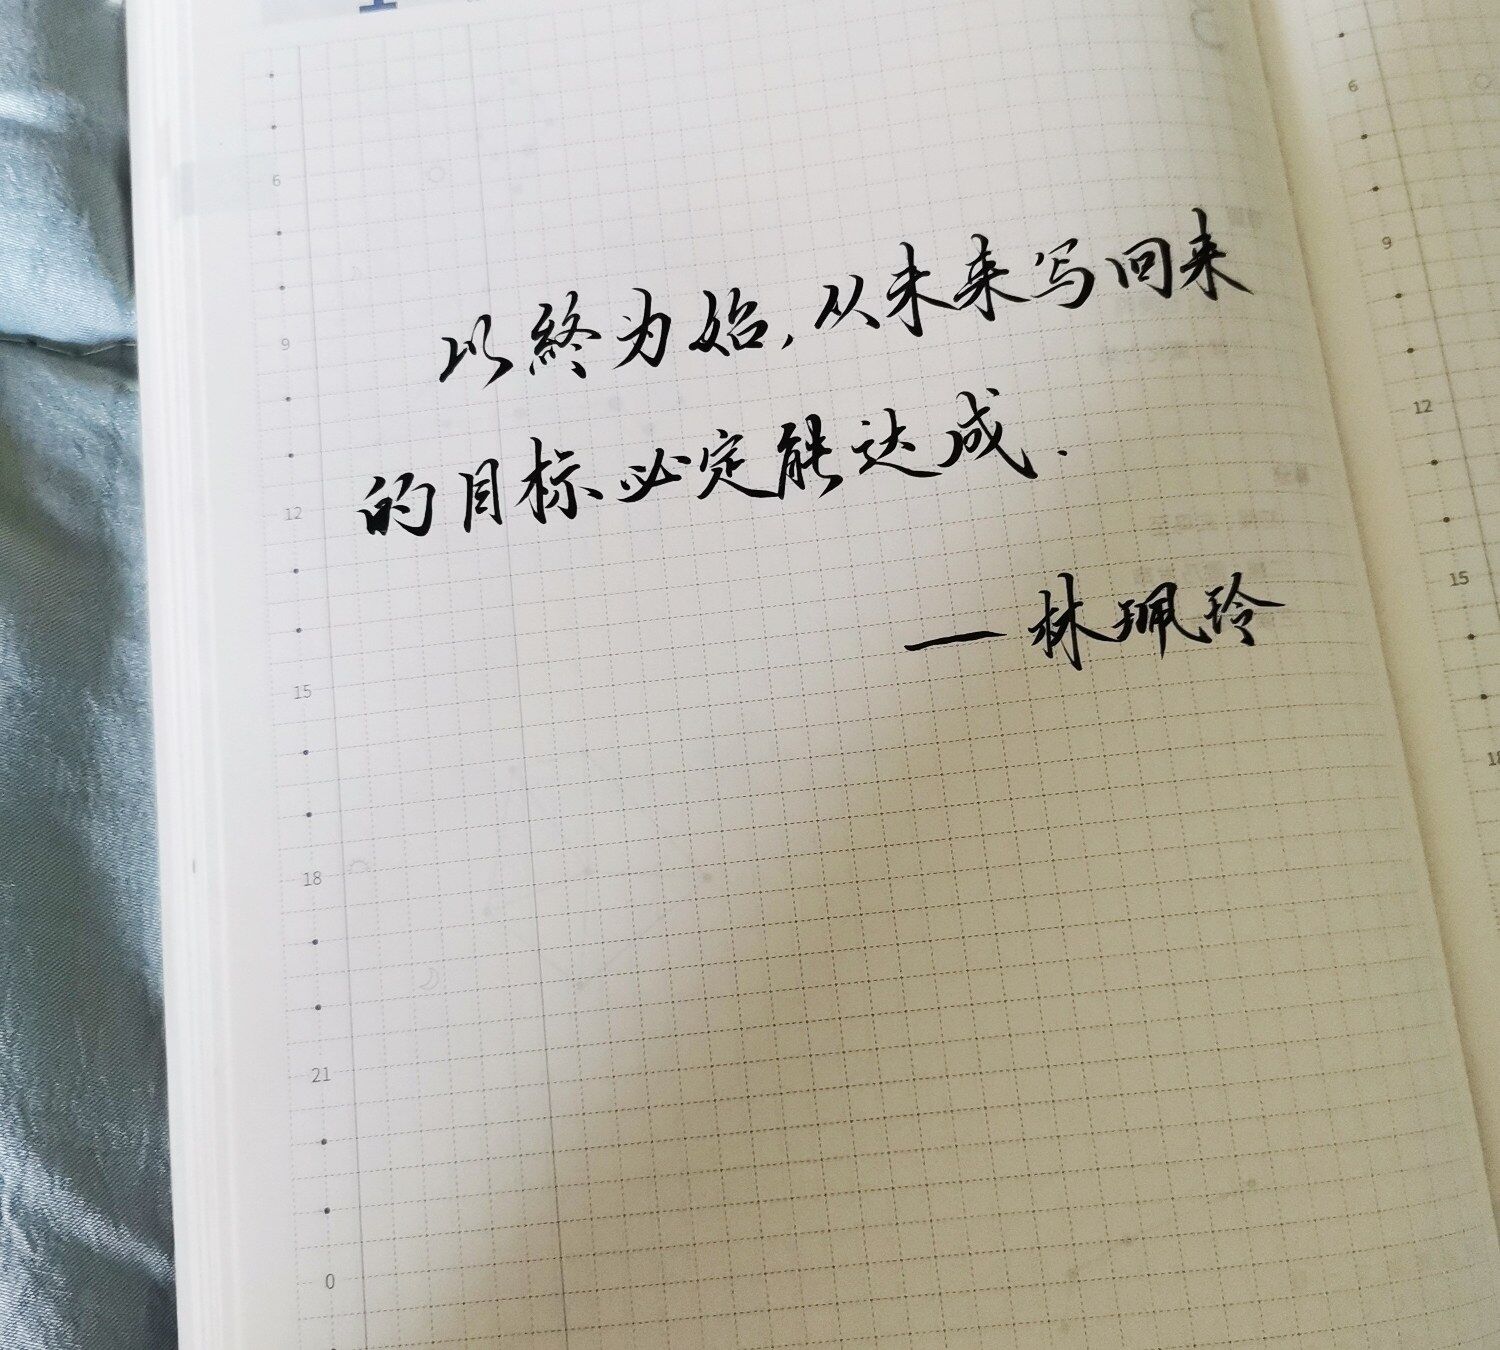 以終为始，从未来写回来
的目标必定能达成.
—林珮玲
6
9
12
15
18
21
0
6
9
12
15
18